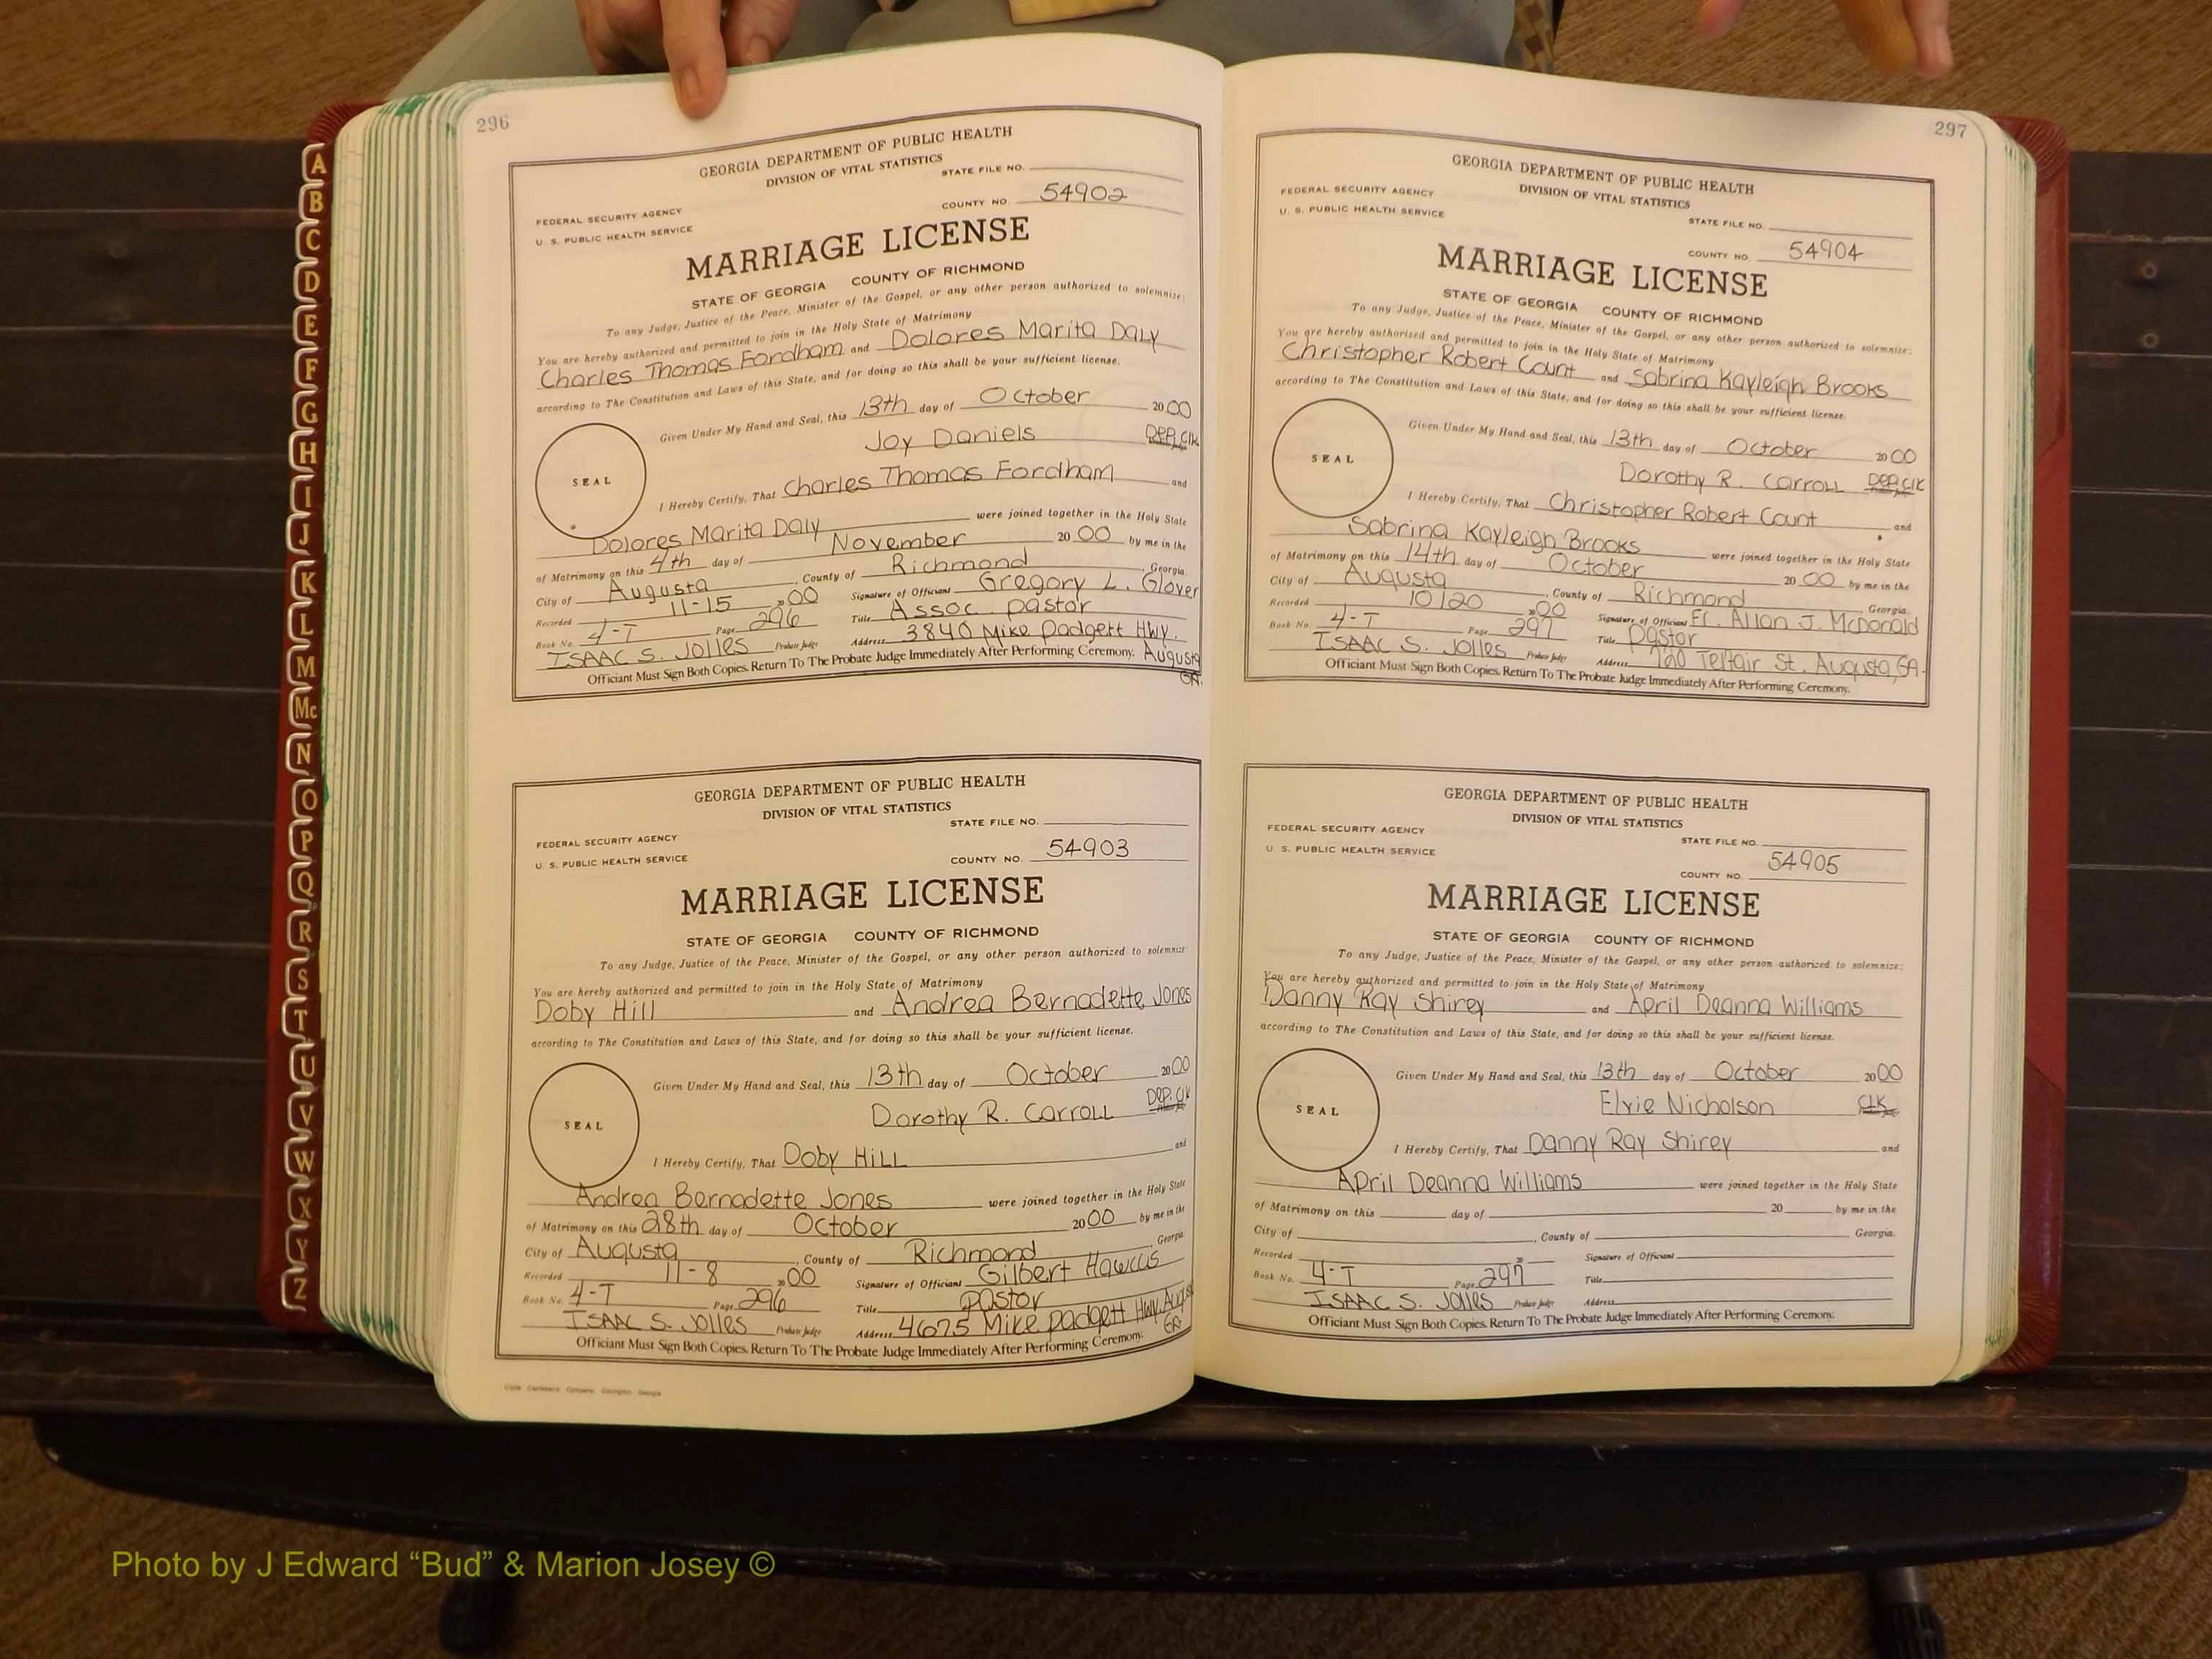 A
B
C
D
E
F
G
H
I
J
K
L
M
Mc
N
O
P
Q
R
S
T
U
V
W
X
Y
Z
296
GEORGIA DEPARTMENT OF PUBLIC HEALTH
DIVISION OF VITAL STATISTICS
STATE FILE NO.
FEDERAL SECURITY AGENCY
U. S. PUBLIC HEALTH SERVICE
COUNTY NO. 54902
MARRIAGE LICENSE
STATE OF GEORGIA COUNTY OF RICHMOND
To any Judge, Justice of the Peace, Minister of the Gospel, or any other person authorized to solemnize:
You are hereby authorized and permitted to join in the Holy State of Matrimony
Charles Thomas Fordham and Dolores Marita Daly
according to The Constitution and Laws of this State, and for doing so this shall be your sufficient license.
Given Under My Hand and Seal, this 13th day of October 2000
Joy Daniels DEP. Clk
SEAL
I Hereby Certify, That Charles Thomas Fordham and
Dolores Marita Daly were joined together in the Holy State
of Matrimony on this 4th day of November 2000 by me in the
City of Augusta, County of Richmond, Georgia.
Recorded 11-15 2000 Signature of Officiant Gregory L. Glover
Book No. 4-T Page 296 Title Assoc. pastor
ISAAC S. JOLLES Probate Judge Address 3840 Mike Padgett Hwy. Augusta GA.
Officiant Must Sign Both Copies. Return To The Probate Judge Immediately After Performing Ceremony.
GEORGIA DEPARTMENT OF PUBLIC HEALTH
DIVISION OF VITAL STATISTICS
STATE FILE NO.
FEDERAL SECURITY AGENCY
U. S. PUBLIC HEALTH SERVICE
COUNTY NO. 54903
MARRIAGE LICENSE
STATE OF GEORGIA COUNTY OF RICHMOND
To any Judge, Justice of the Peace, Minister of the Gospel, or any other person authorized to solemnize:
You are hereby authorized and permitted to join in the Holy State of Matrimony
Doby Hill and Andrea Bernadette Jones
according to The Constitution and Laws of this State, and for doing so this shall be your sufficient license.
Given Under My Hand and Seal, this 13th day of October 2000
Dorothy R. Carroll DEP. Clk
SEAL
I Hereby Certify, That Doby Hill and
Andrea Bernadette Jones were joined together in the Holy State
of Matrimony on this 28th day of October 2000 by me in the
City of Augusta, County of Richmond Georgia.
Recorded 11-8 2000 Signature of Officiant Gilbert
Book No. 4-T Page 296 Title Pastor
ISAAC S. JOLLES Probate Judge Address 4675 Mike padgett Hwy. August GA.
Officiant Must Sign Both Copies. Return To The Probate Judge Immediately After Performing Ceremony.
297
GEORGIA DEPARTMENT OF PUBLIC HEALTH
DIVISION OF VITAL STATISTICS
FEDERAL SECURITY AGENCY
U. S. PUBLIC HEALTH SERVICE
STATE FILE NO.
COUNTY NO. 54904
MARRIAGE LICENSE
STATE OF GEORGIA COUNTY OF RICHMOND
To any Judge, Justice of the Peace, Minister of the Gospel, or any other person authorized to solemnize:
You are hereby authorized and permitted to join in the Holy State of Matrimony
Christopher Robert Count and Sabrina Kayleigh Brooks
according to The Constitution and Laws of this State, and for doing so this shall be your sufficient license.
Given Under My Hand and Seal, this 13th day of October 2000
Dorothy R. Carroll DEP. Clk
SEAL
I Hereby Certify, That Christopher Robert Count and
Sabrina Kayleigh Brooks were joined together in the Holy State
of Matrimony on this 14th day of October 2000 by me in the
City of Augusta, County of Richmond, Georgia.
Recorded 10/20 2000 Signature of Officiant Fr. Allan J. McDonald
Book No. 4-T Page 297 Title Pastor
ISAAC S. JOLLES Probate Judge Address 720 Telfair St. Augusta, GA.
Officiant Must Sign Both Copies. Return To The Probate Judge Immediately After Performing Ceremony.
GEORGIA DEPARTMENT OF PUBLIC HEALTH
DIVISION OF VITAL STATISTICS
FEDERAL SECURITY AGENCY
U. S. PUBLIC HEALTH SERVICE
STATE FILE NO.
COUNTY NO. 54905
MARRIAGE LICENSE
STATE OF GEORGIA COUNTY OF RICHMOND
To any Judge, Justice of the Peace, Minister of the Gospel, or any other person authorized to solemnize:
You are hereby authorized and permitted to join in the Holy State of Matrimony
Danny Ray Shirey and April Deanna Williams
according to The Constitution and Laws of this State, and for doing so this shall be your sufficient license.
Given Under My Hand and Seal, this 13th day of October 2000
Elvie Nicholson Clk
SEAL
I Hereby Certify, That Danny Ray Shirey and
April Deanna Williams were joined together in the Holy State
of Matrimony on this day of 20 by me in the
City of, County of, Georgia.
Recorded 20 Signature of Officiant
Book No. 4-T Page 297 Title
ISAAC S. JOLLES Probate Judge Address
Officiant Must Sign Both Copies. Return To The Probate Judge Immediately After Performing Ceremony.
Photo by J Edward “Bud” & Marion Josey ©